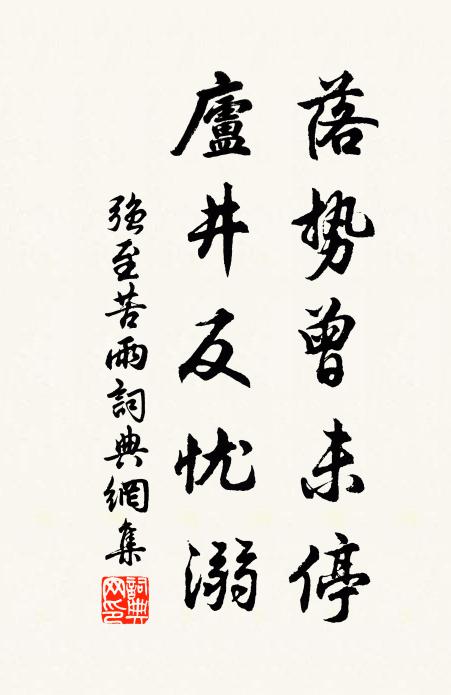 落势曾未停
廬井反忧溺
强至苦雨詞典網集
詞典网印